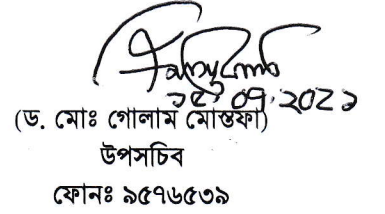 ১৫.০৭.২০২১
(ড. মোঃ গোলাম মোস্তফা)
উপসচিব
ফোনঃ ৯৫৭৬৫৩৯